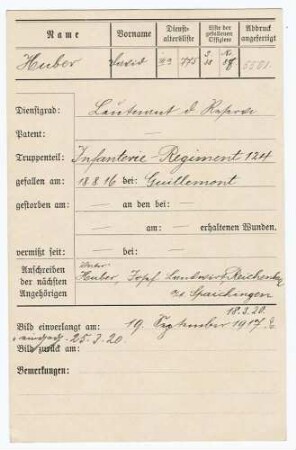 Name Vorname Dienstaltersliste Liste der gefallenen Offiziere Abdruck angefertigt
Huber David 775
Dienstgrad: Leutnant d. Reserve
Patent: —
Truppenteil: Infanterie-Regiment 124
gefallen am: 18.8.16 bei: Guillemont
gestorben am: — an den bei: —
— am: — erhaltenen Wunden.
vermißt seit: — bei: —
Vater:
Anschreiben der nächsten Angehörigen Huber, Josef Landwirt, Reichenbach
Spaichingen
18.3.20.
Bild einverlangt am: 19. September 1917
Bild zurück am: 25.3.20
Bemerkungen: